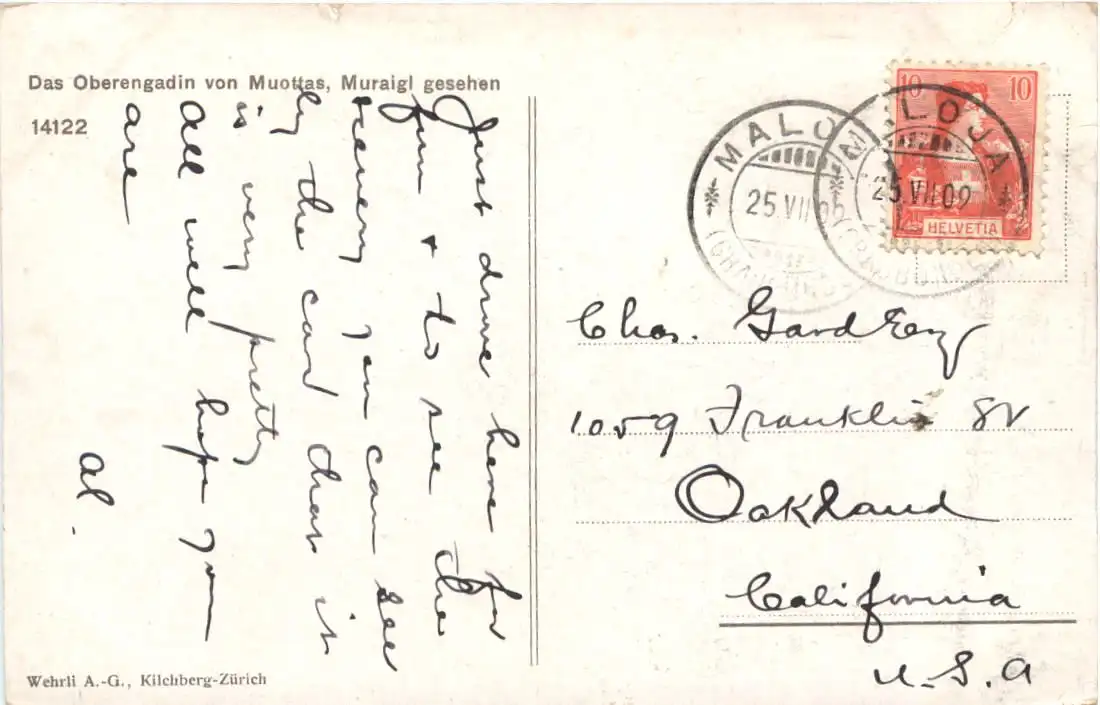 Das Oberengadin von Muottas, Muraigl gesehen
14122
Just drove here for
fun + to see the
scenery you can see
by the card that it
is very pretty
All well hope you
are
Al.
Wehrli A.-G., Kilchberg-Zürich
10 10
HELVETIA
MALOJA
25.VII.09
MALOJA
25.VII.09
Chas.
1059 Franklin St
Oakland
California
U.S.A